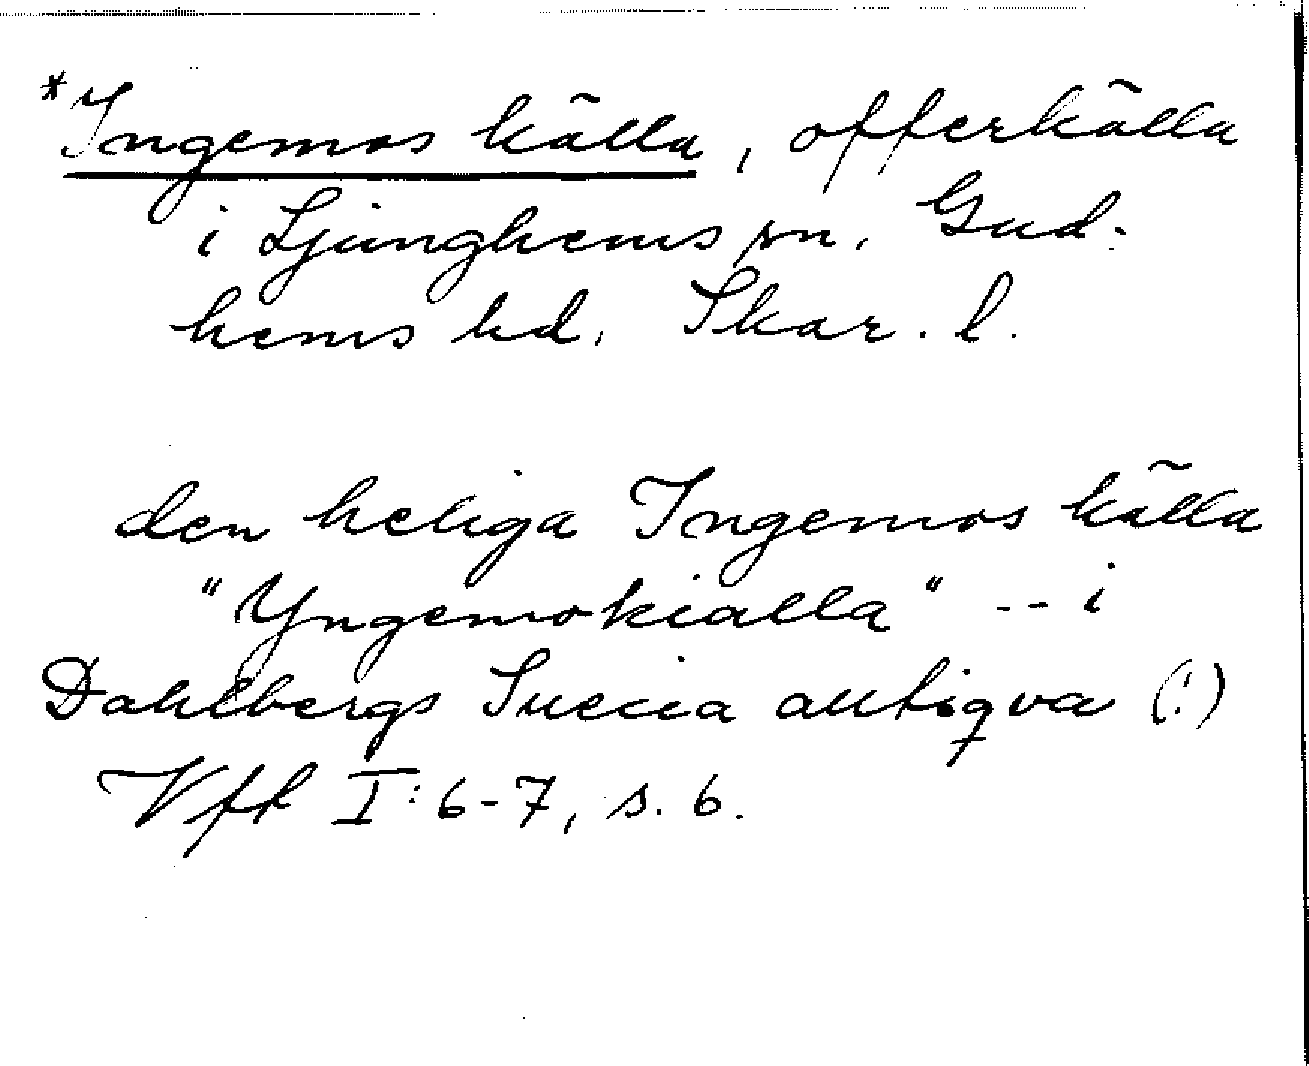 *Ingemos källa, offerkälla
i Ljunghems sn, Gud-
hems hd, Skar. l.
den heliga Ingemos källa
"Yngemokialla" -- i
Dahlbergs Suecia antiqva (!)
Vfk I:6-7, s. 6.